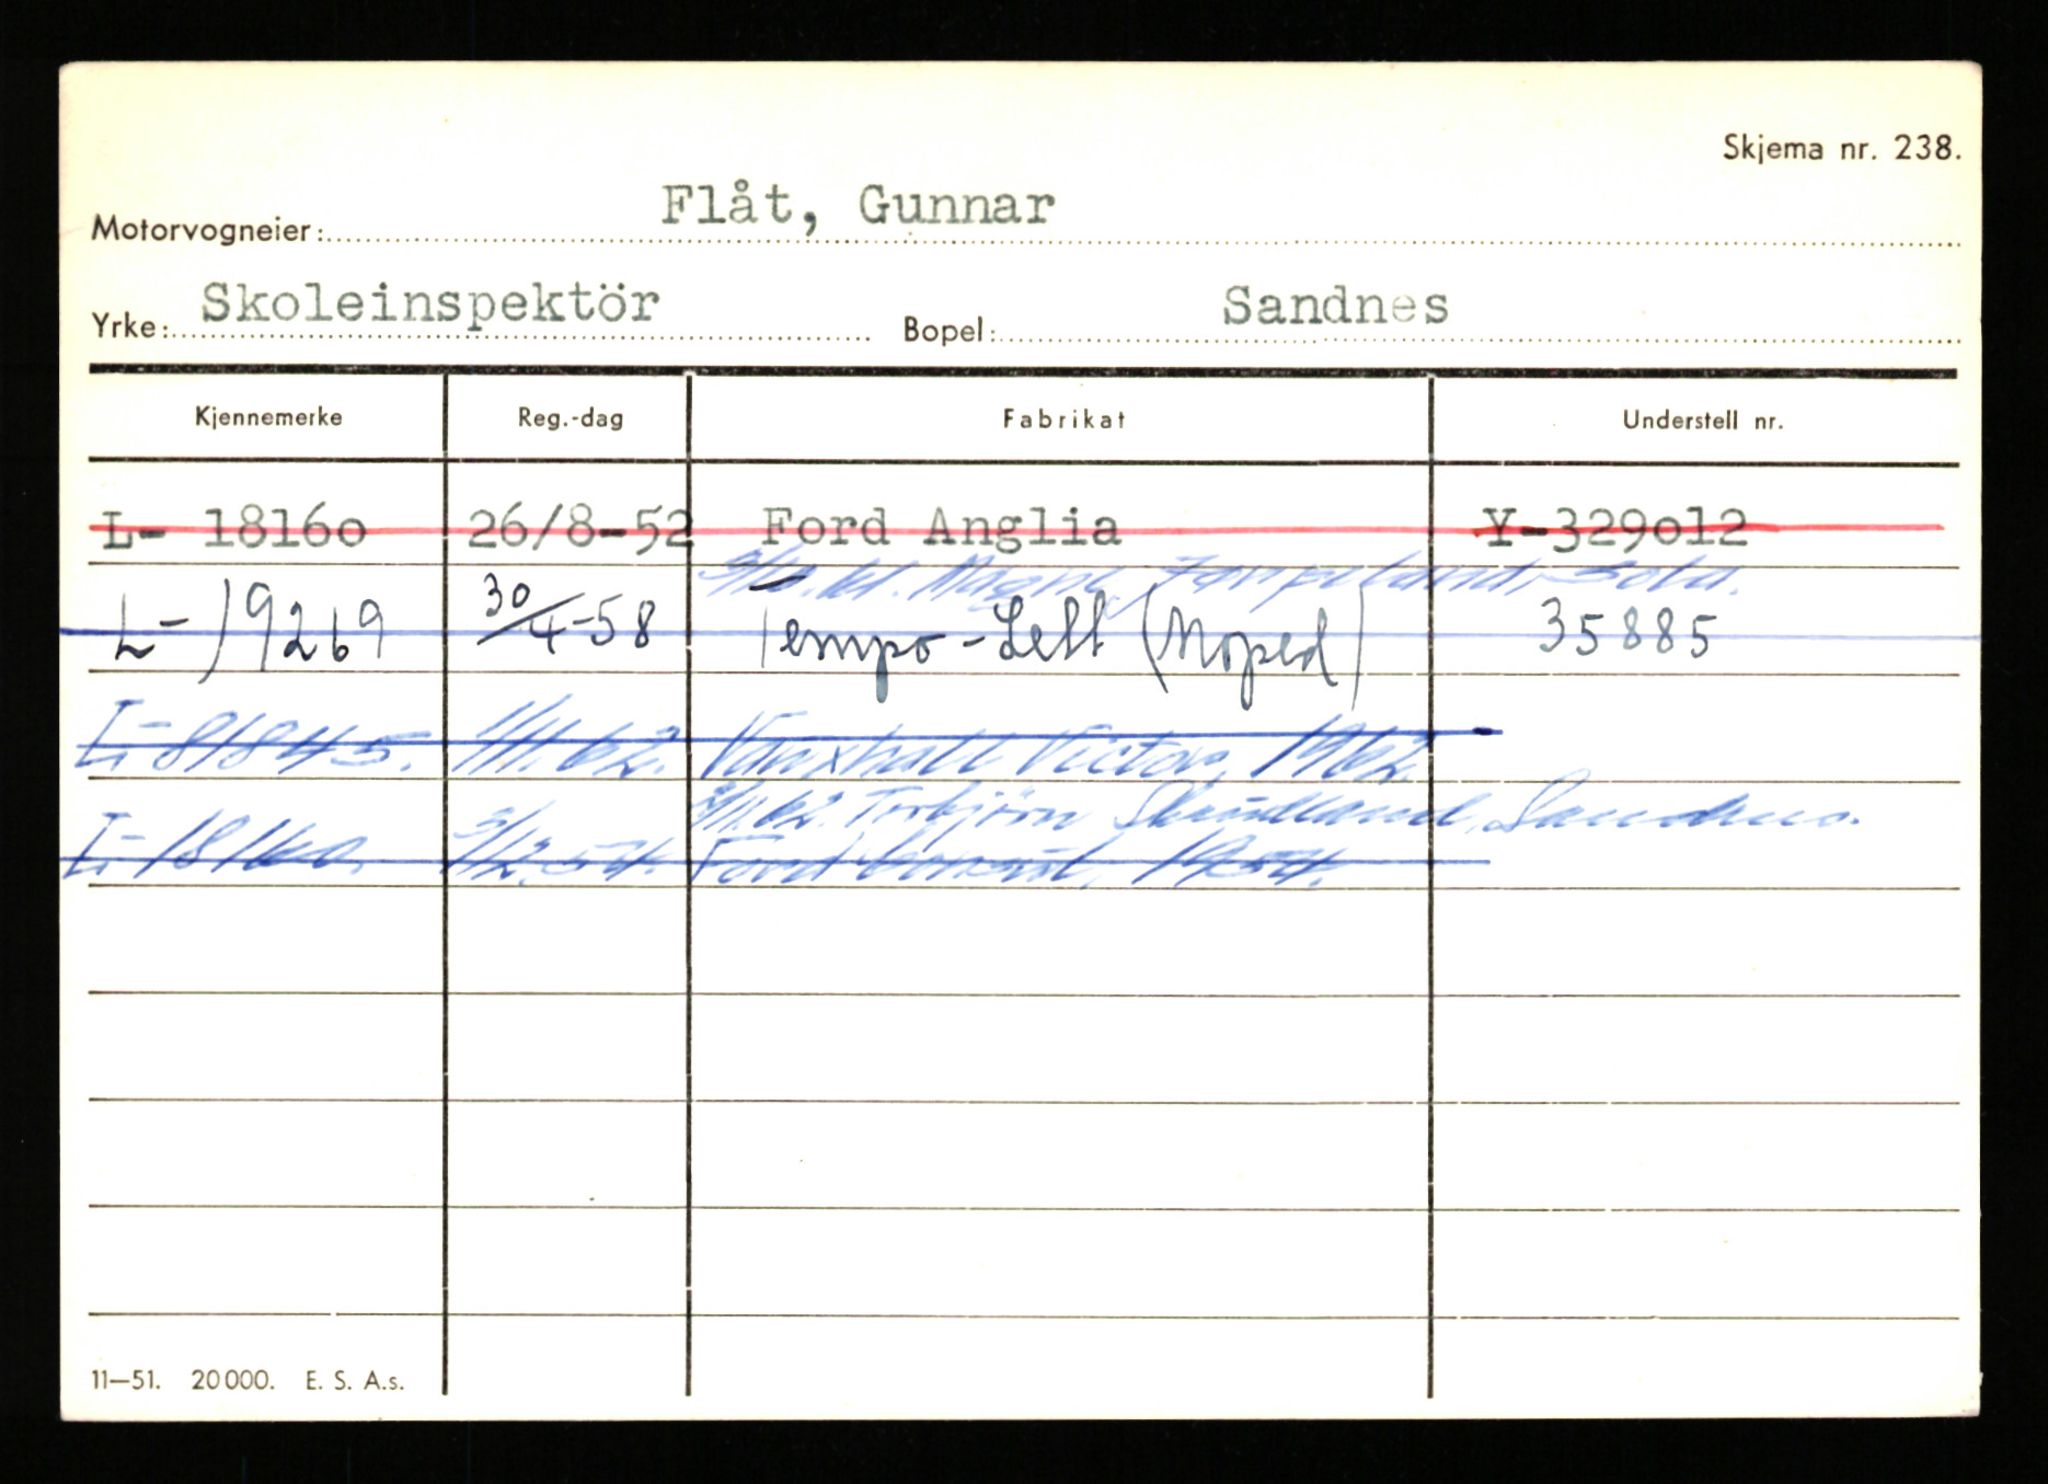 Skjema nr. 238.
Motorvogneier: Flåt, Gunnar
Yrke: Skoleinspektör Bopel: Sandnes
Kjennemerke Reg.-dag Fabrikat Understell nr.
L- 18160 26/8-52 Ford Anglia Y-329012
Sola.
L-19269 30/4-58 Tempo-Lett (Moped) 35885
L-81845. 1/11.62. Vauxhall Victor, 1962.
Torbjörn Skudland, Sandnes.
L-18160. 3/12.54. Ford Consul, 1954.
11—51. 20 000. E. S. A.s.